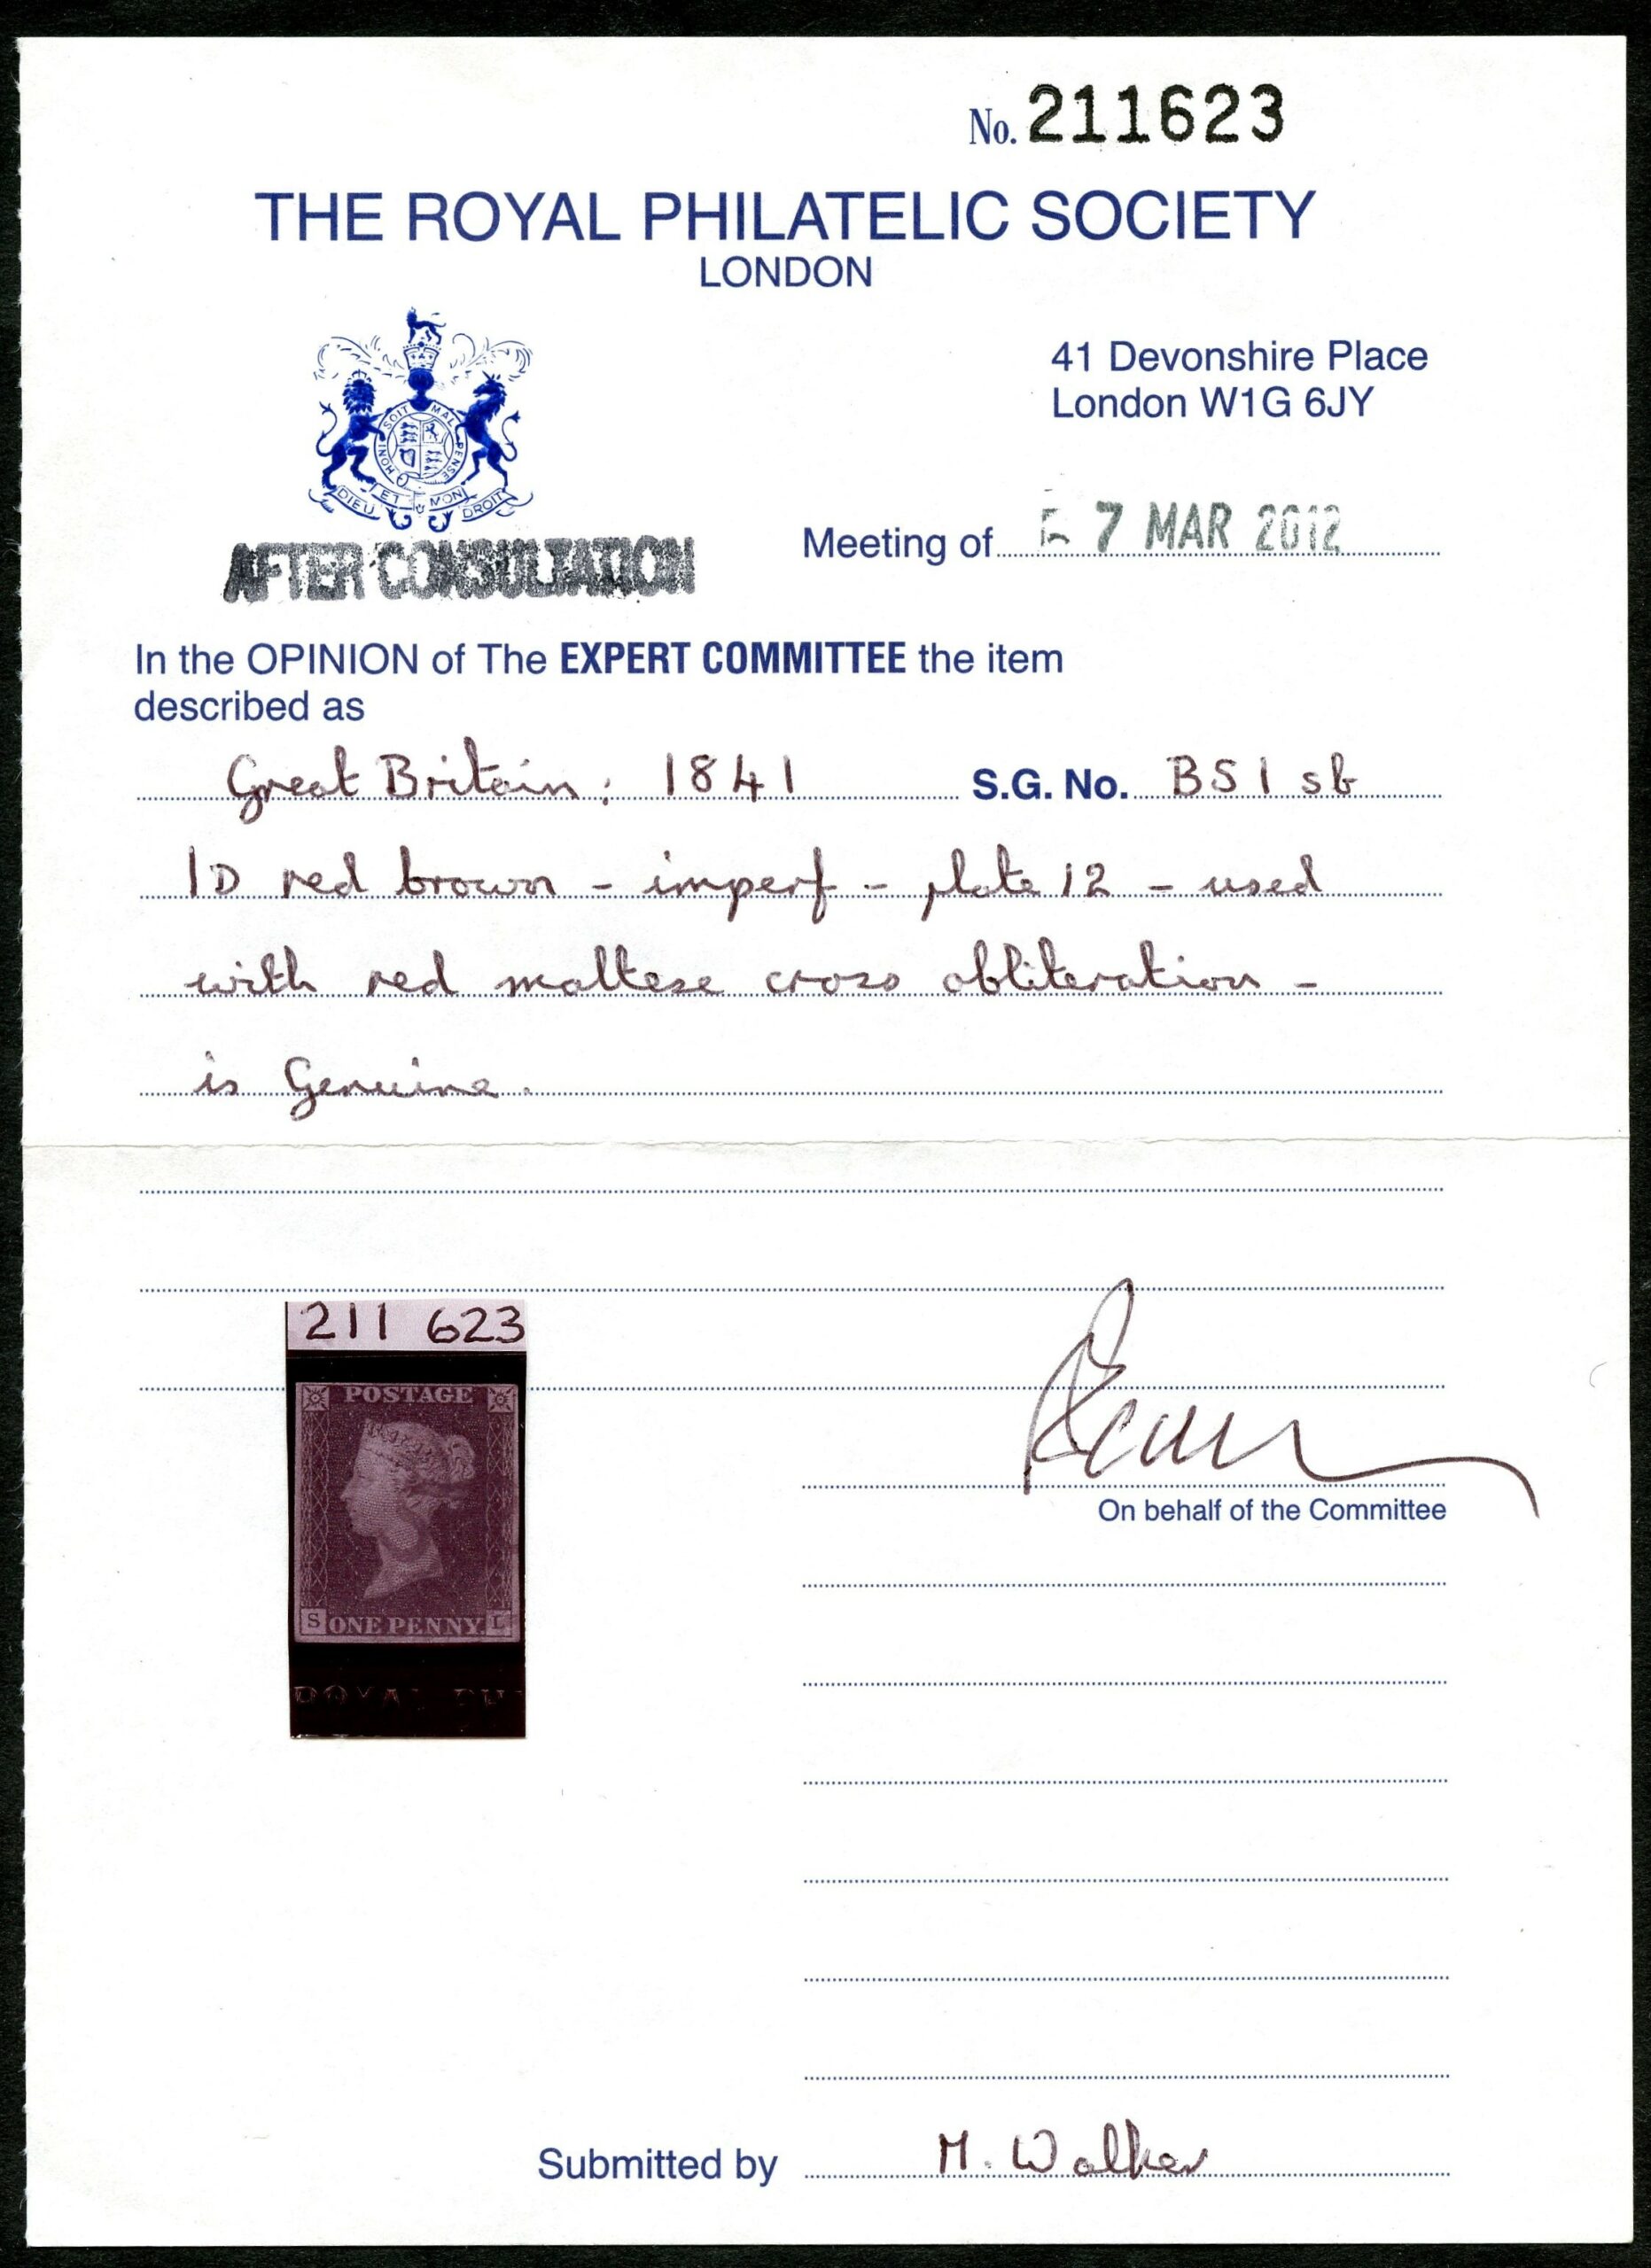 No. 211623
THE ROYAL PHILATELIC SOCIETY
LONDON
41 Devonshire Place
London W1G 6JY
HONI SOIT MAL PENSE
DIEU ET MON DROIT
Meeting of 7 MAR 2012
AFTER CONSULTATION
In the OPINION of The EXPERT COMMITTEE the item
described as
Great Britain: 1841 S.G. No. BS1sb
1D red brown - imperf - plate 12 - used
with red maltese cross obliteration -
is Genuine.
211 623
POSTAGE
S ONE PENNY. L
ROYAL PH
On behalf of the Committee
Submitted by M. Walker